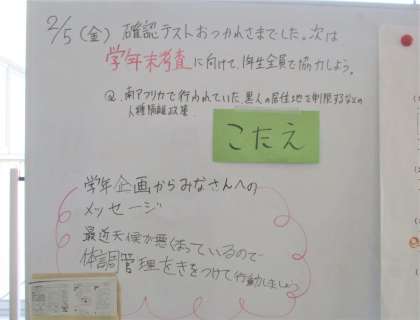 2/5(金) 確認テストおつかれさまでした。次は
学年末考査に向けて、1年生全員で協力しよう。
Q. 南アフリカで行われていた、黒人の居住地を制限するなどの
人種隔離政策
こたえ
学年企画からみなさんへの
メッセージ
最近天候が悪くなっているので
体調管理をきをつけて行動しましょう